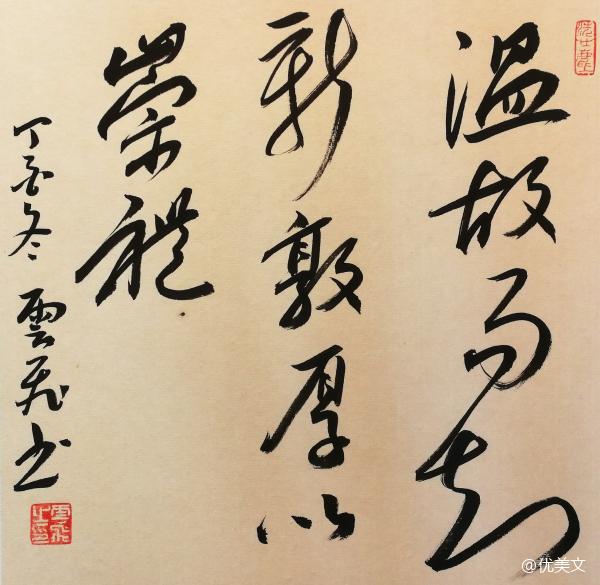 温故而知
新敦厚以
崇禮
丁酉冬 雲飛书
@优美文